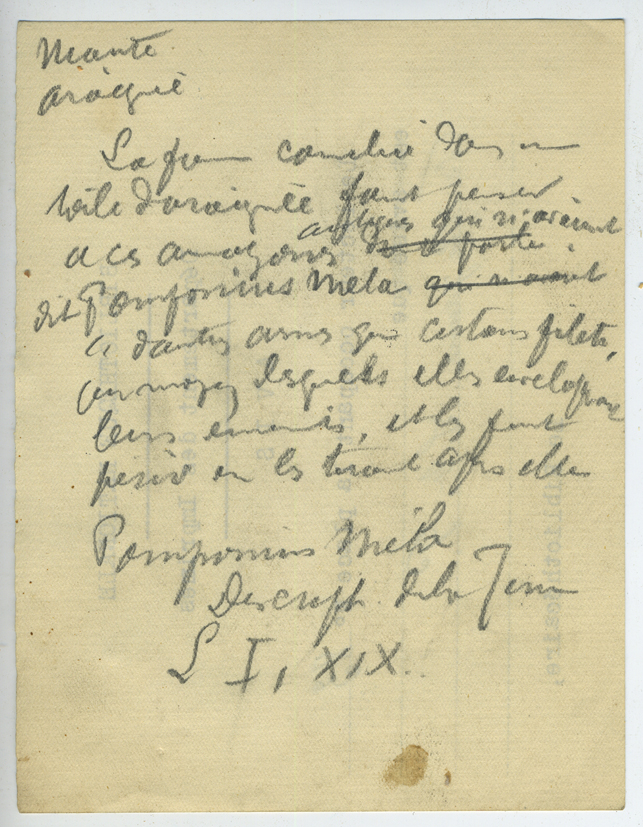 Mante
araignée
La femme dans une
toile d'araignée fait penser
antiques qui n'avaient
a ces amazones
dit Pomponius Mela qui n'avaient
d'autres armes que certains filets,
au moyen desquels elles enveloppaient
leurs ennemis, et les font
périr en les tirant après elles
Pomponius Méla
Descript. de la Terre
L I, XIX.